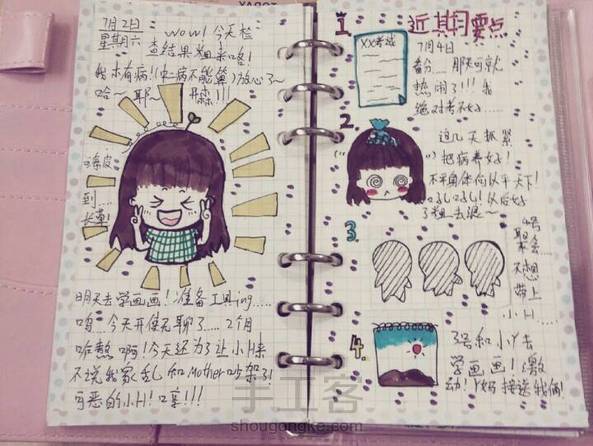 7月2日
星期六
wow! 今天检
查结果出来咯!
我木有病!(中二病不能算)放心了~
哈~ 耶~ 开森!!!
到....
明天去学画画! 准备工具ing......
呜... 今天开使无聊了.... 2个
哈热啊! 今天还为了让小H来
不说我家乱和Mother吵架了!
可恶的小H! 哼!!!
近期要点
1
XX考试
7月4日
那天可就
热闹了!!! 我
绝对考不好......
2.
这几天抓紧
把病养好!
以后好
了粗去浪~
3.
4号
聚会
不想
带上
小H....
4.
3号和小Y去
学画画! 激
动! Y妈接送我俩!
手工客
shougongke.com